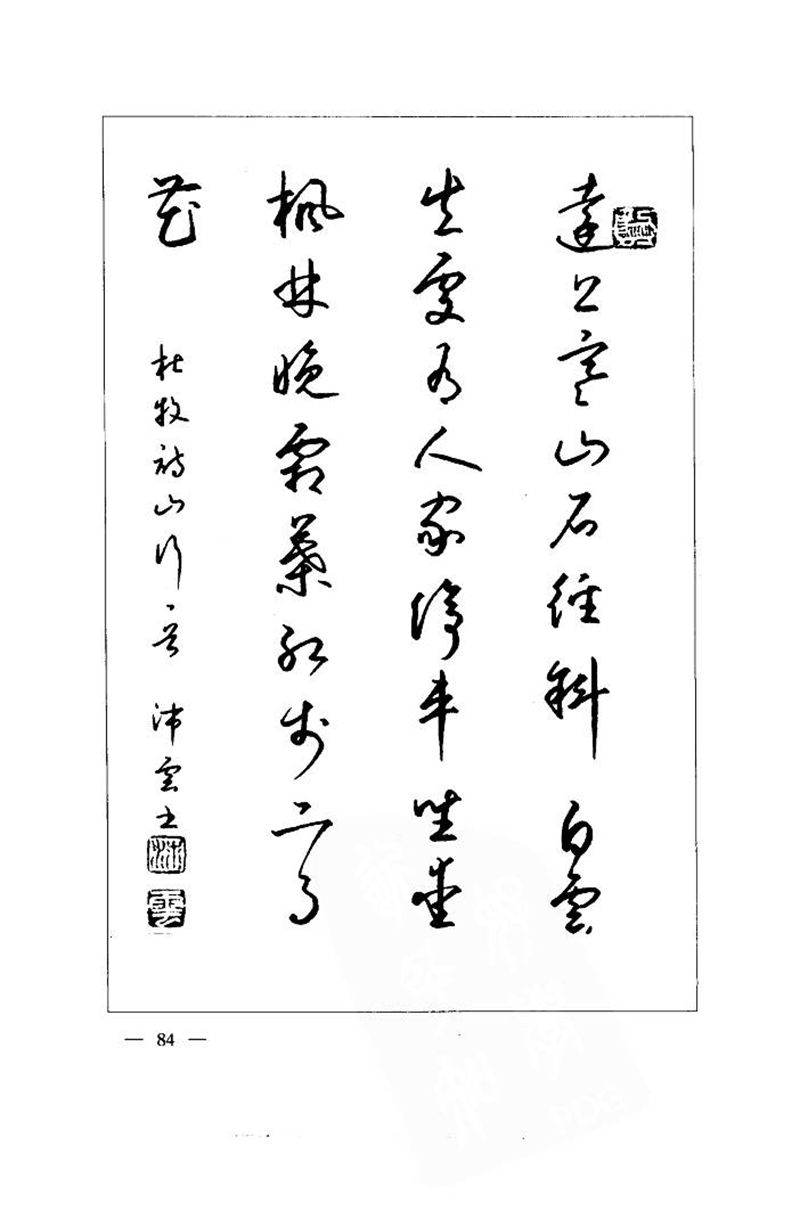 遠上寒山石徑斜白雲
生處有人家停車坐愛
楓林晚霜葉紅於二月
花
杜牧詩山行一首 沛雲书
沛
雲
— 84 —